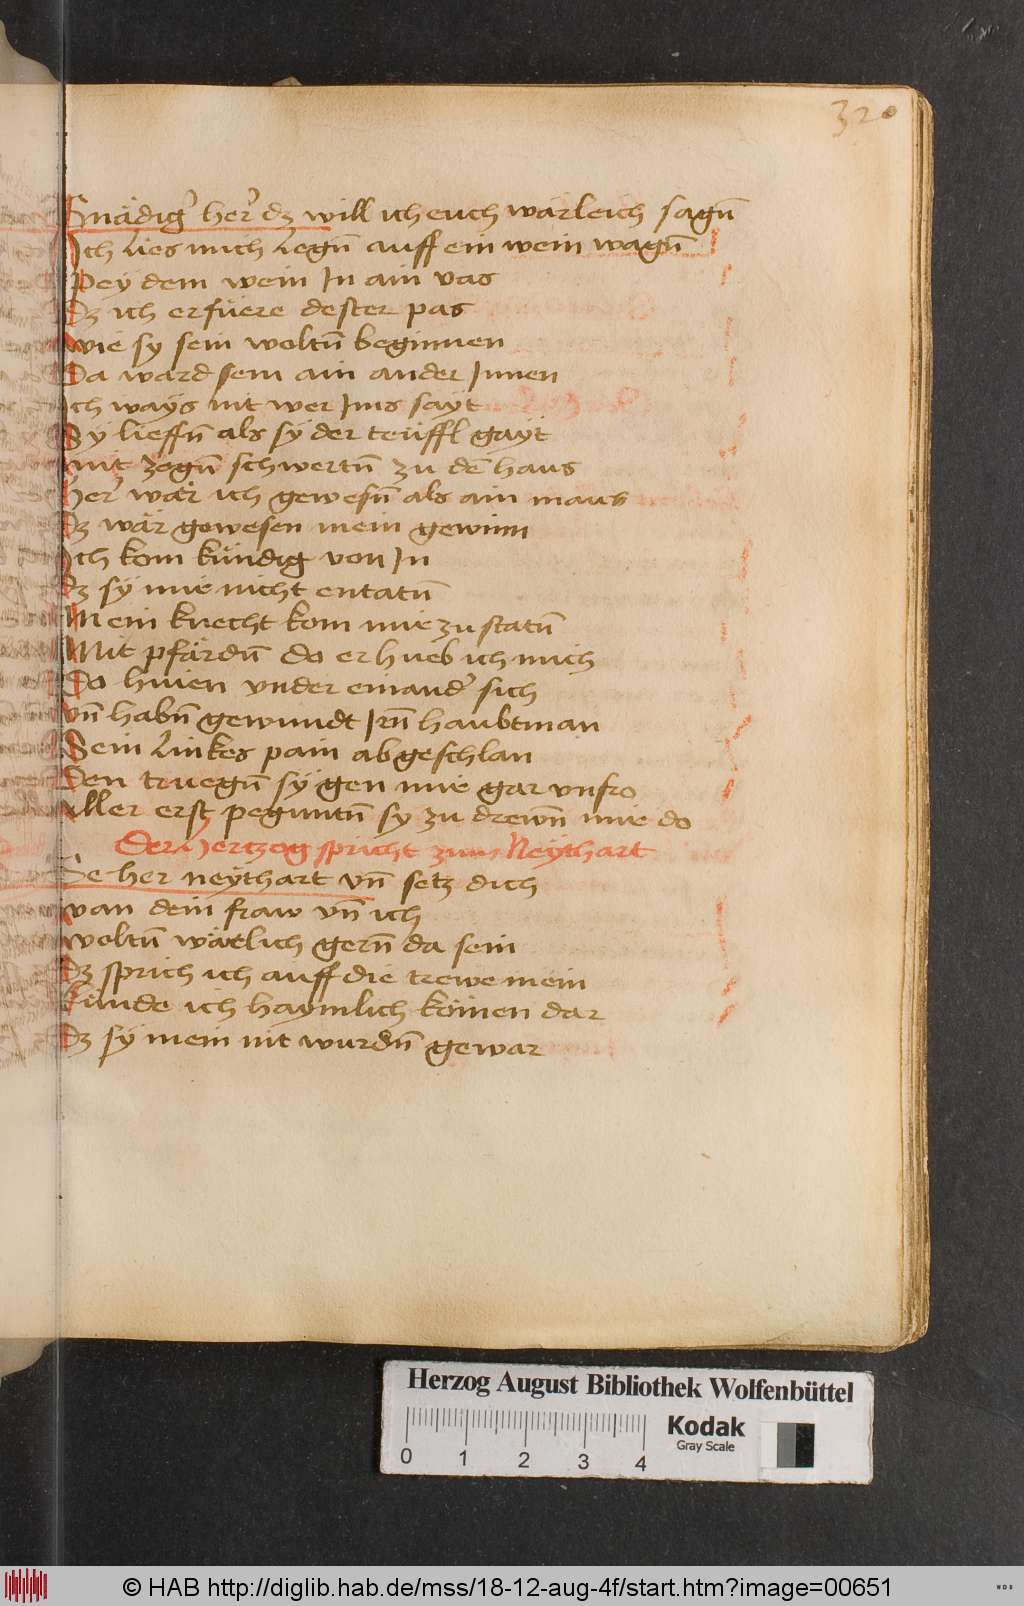 320
Gnädig' her' dz will ich euch wärleich sagn̄
Ich lies mich legn̄ auff ein wein wagn̄
Pey dem wein In ain vas
Dz ich erfüere dester pas
wie sy sein woltn̄ beginnen
Da ward sein ain ander Innen
Ich ways nit wer Ims sayt
Sy lieffn̄ als sy der teüffl gayt
mit zogn̄ schwertn̄ zu dē haus
her' wär ich gewesn̄ als ain maus
Dz wär gewesen mein gewinn
Ich kom kündig von In
dz sy mir nicht entatn̄
Mein knecht kom mir zu statn̄
Mit pfärdn̄ do er hueb ich mich
Do hiuen vnder einand' sich
vn̄ habn̄ gewundt Irn̄ haubtman
Sein linkes pain abgeschlan
Den truegn̄ sy gen mir gar vnfro
Aller erst peguntn̄ sy zu drewn̄ mir do
Der hertzog spricht zum Neythart
Se her neythart vn̄ setz dich
wan dein fraw vn̄ ich
woltn̄ wätlich gern̄ da sein
Dz sprich ich auff die trewe mein
Künde ich haymlich kömen dar
Dz sy mein nit wurdn̄ gewar
Herzog August Bibliothek Wolfenbüttel
0 1 2 3 4
Kodak
Gray Scale
© HAB http://diglib.hab.de/mss/18-12-aug-4f/start.htm?image=00651